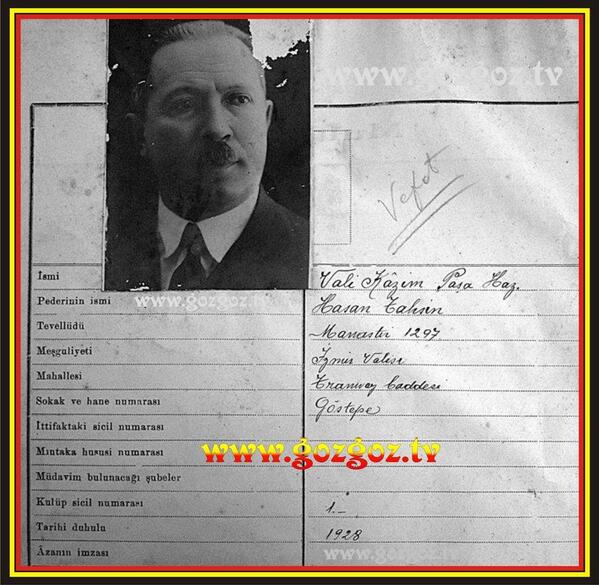 www.gozgoz.tv
Vefat
İsmi Vali Kâzim Paşa Haz.
www.gozgoz.tv
Pederinin ismi Hasan Tahsin
Tevellüdü Manastir 1297
Meşguliyeti İzmir Valisi
Mahallesi Tramvay Caddesi
Sokak ve hane numarası Göztepe
İttifaktaki sicil numarası
Mıntaka hususi numarası
www.gozgoz.tv
Müdavim bulunacağı şubeler
Kulüp sicil numarası 1.-
Tarihi duhulu 1928
Âzanın imzası
www.gozgoz.tv